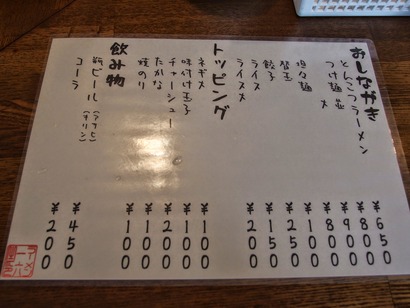 おしながき
とんこつラーメン ¥650
つけ麺 並 ¥800
〃 大 ¥900
坦々麺 ¥800
替玉 ¥100
餃子 ¥250
ライス ¥150
ライス大 ¥200
トッピング
ネギ ¥100
味付け玉子 ¥100
チャーシュー ¥200
たかな ¥100
焼のり ¥100
飲み物
瓶ビール (アサヒ)(キリン) ¥450
コーラ ¥200